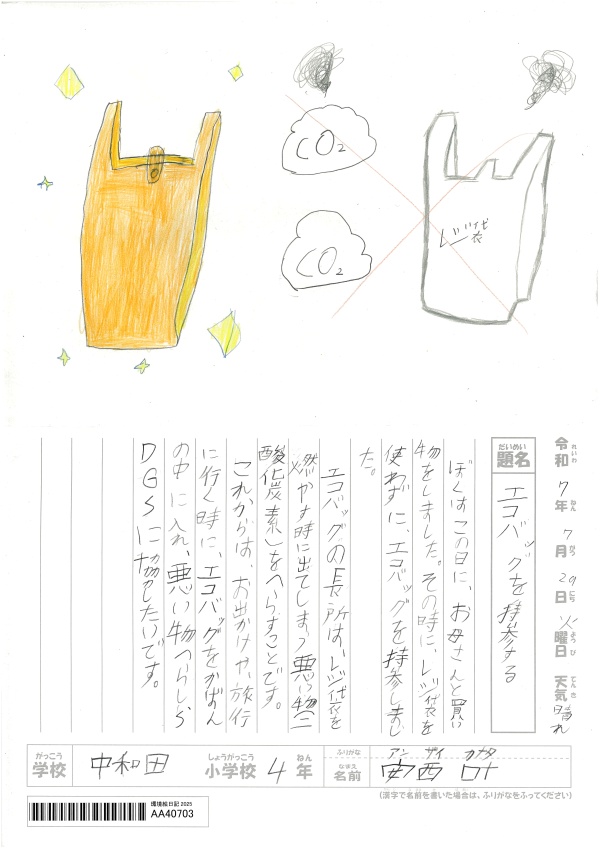 CO2
CO2
レジ袋
令和7年7月29日火曜日 天気晴れ
れいわ ねん がつ にち ようび てんき
だいめい
題名 エコバッグを持参する
ぼくはこの日に、お母さんと買い
物をしました。その時に、レジ袋を
使わずに、エコバッグを持参しまし
た。
エコバッグの長所は、レジ袋を
燃やす時に出てしまう悪い物「二
酸化炭素」をへらすことです。
これからは、お出かけや、旅行
に行く時に、エコバッグをかばん
の中に入れ、悪い物へらしSら
DGSに協力したいです。
がっこう しょうがっこう ねん ふりがな アンザイ カナタ
学校 中和田 小学校 4年 なまえ 名前 安西
(漢字で名前を書いた場合は、ふりがなをふってください)
環境絵日記 2025
AA40703